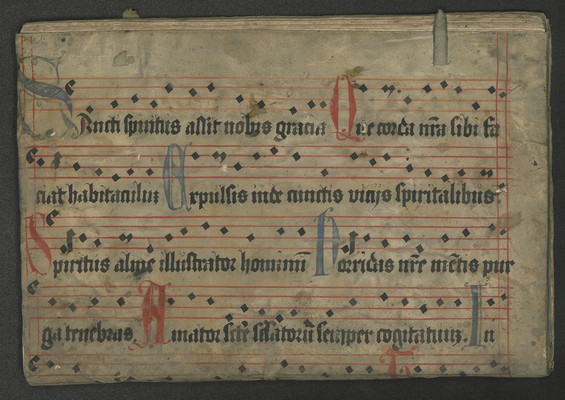 Sancti spiritus assit nobis gracia Que corda nr̄a sibi fa
ciat habitaculum Expulsis inde cunctis vicijs spiritalibus
Spiritus alme illustrator hominū Horridas nr̄e mētis pur
ga tenebras. Amator scē sēsatorū semper cogitatuum. In